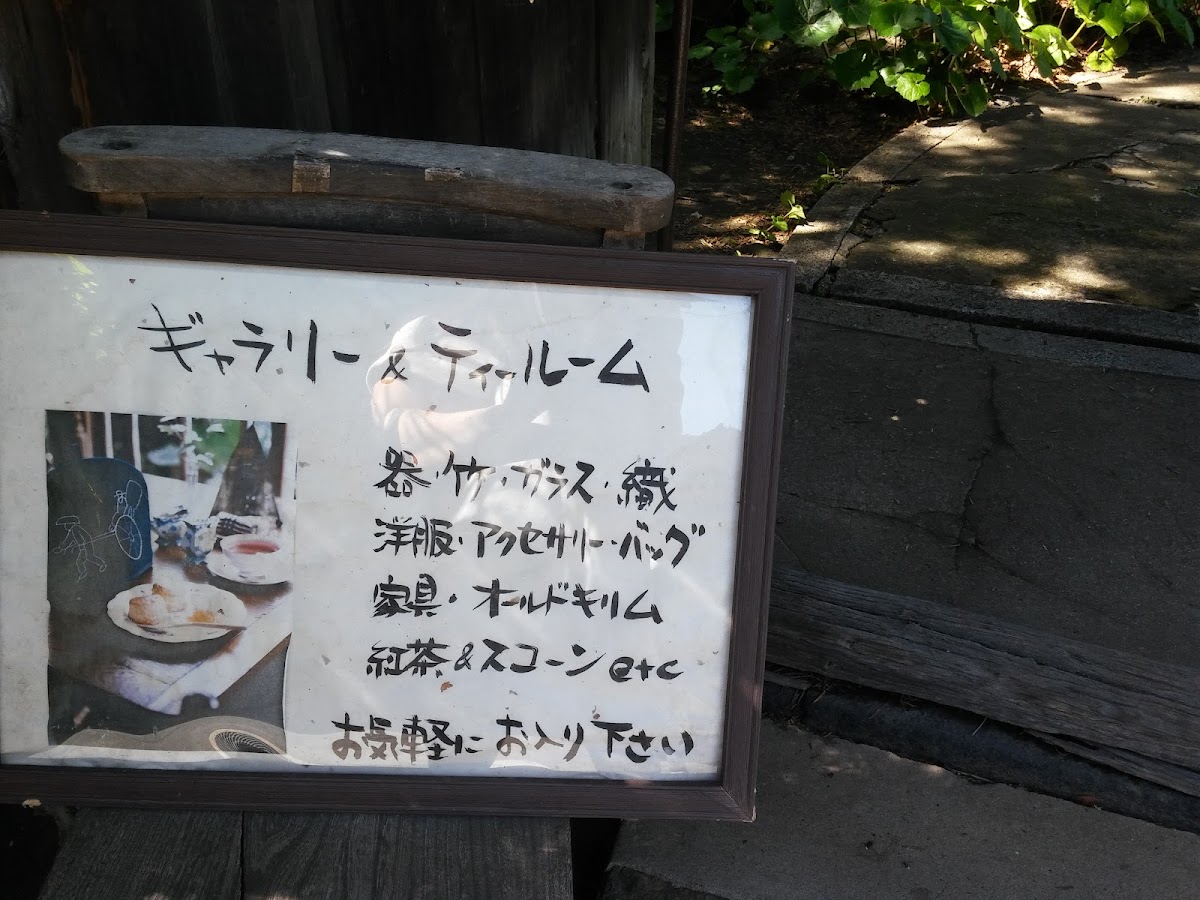 ギャラリー & ティールーム
器・竹・ガラス・織
洋服・アクセサリー・バッグ
家具・オールドキリム
紅茶 & スコーン etc
お気軽に お入り 下さい